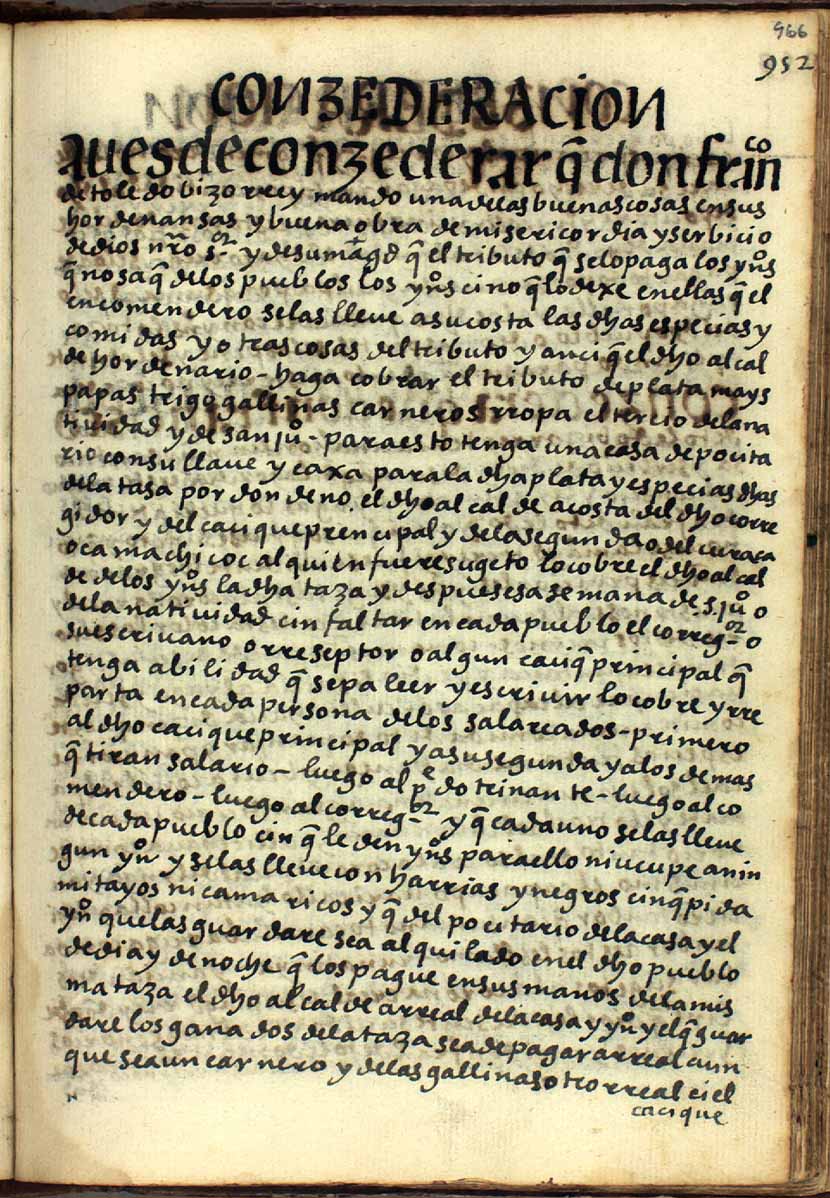 966
952
CONZEDERACION
ques de conzederar q̃ don franco
de toledo bizorrey mando una de las buenas cosas en sus
hordenansas y buena obra de misericordia y serbicio
de dios nr̃o sor y de su magd q̃ el tributo q̃ selo paga los yn̊s
q̃ no saq̃ delos pueblos los yn̊s cino q̃ lo dexe en ellas q̃ el
encomendero selas lleve a su costa las dhas especias y
comidas y otras cosas del tributo y anci q̃ el dho alcal
de hordenario - haga cobrar el tributo de plata mays
papas trigo gallinas carneros rropa el tercio de la na
tividad y de san jů - para esto tenga una casa depocita
rio con su llave y caxa para la dha plata y especias dhas
de la tasa por donde no. el dho alcalde a costa del dho corre
gidor y del cacique prencipal y de la segunda o del curaca
o camachicoc al quien fuere sugeto lo cobre el dho alcal
de de los yn̊s la dha taza y despues esa semana de .s. jů o
de la natividad cin faltar en cada pueblo el corregor o
su escrivano o rreseptor o algun caciq̃ principal q̃
tenga abilidad q̃ sepa leer y escrivir lo cobre y rre
parta en cada persona de los salareados - primero
al dho cacique principal y a su segunda y a los demas
q̃ tiran salario - luego al pe dotrinante - luego al co
mendero - luego al corregor y q̃ cada uno selas lleve
de cada pueblo cin q̃ le den yn̊s para ello ni ucupe a nin
gun yn̊ y selas lleve con harrias y negros cin q̃ pida
mitayos ni camaricos y q̃ del pocitario de la casa y el
yn̊ que las guardare sea alquilado en el dho pueblo
de dia y de noche q̃ los pague en sus manos de la mis
ma taza el dho alcalde a rreal de la casa y yn̊ y el q̃ guar
dare los ganados de la taza sea de pagar a rreal aun
que sea un carnero y de las gallinas otro rreal ci el
cacique